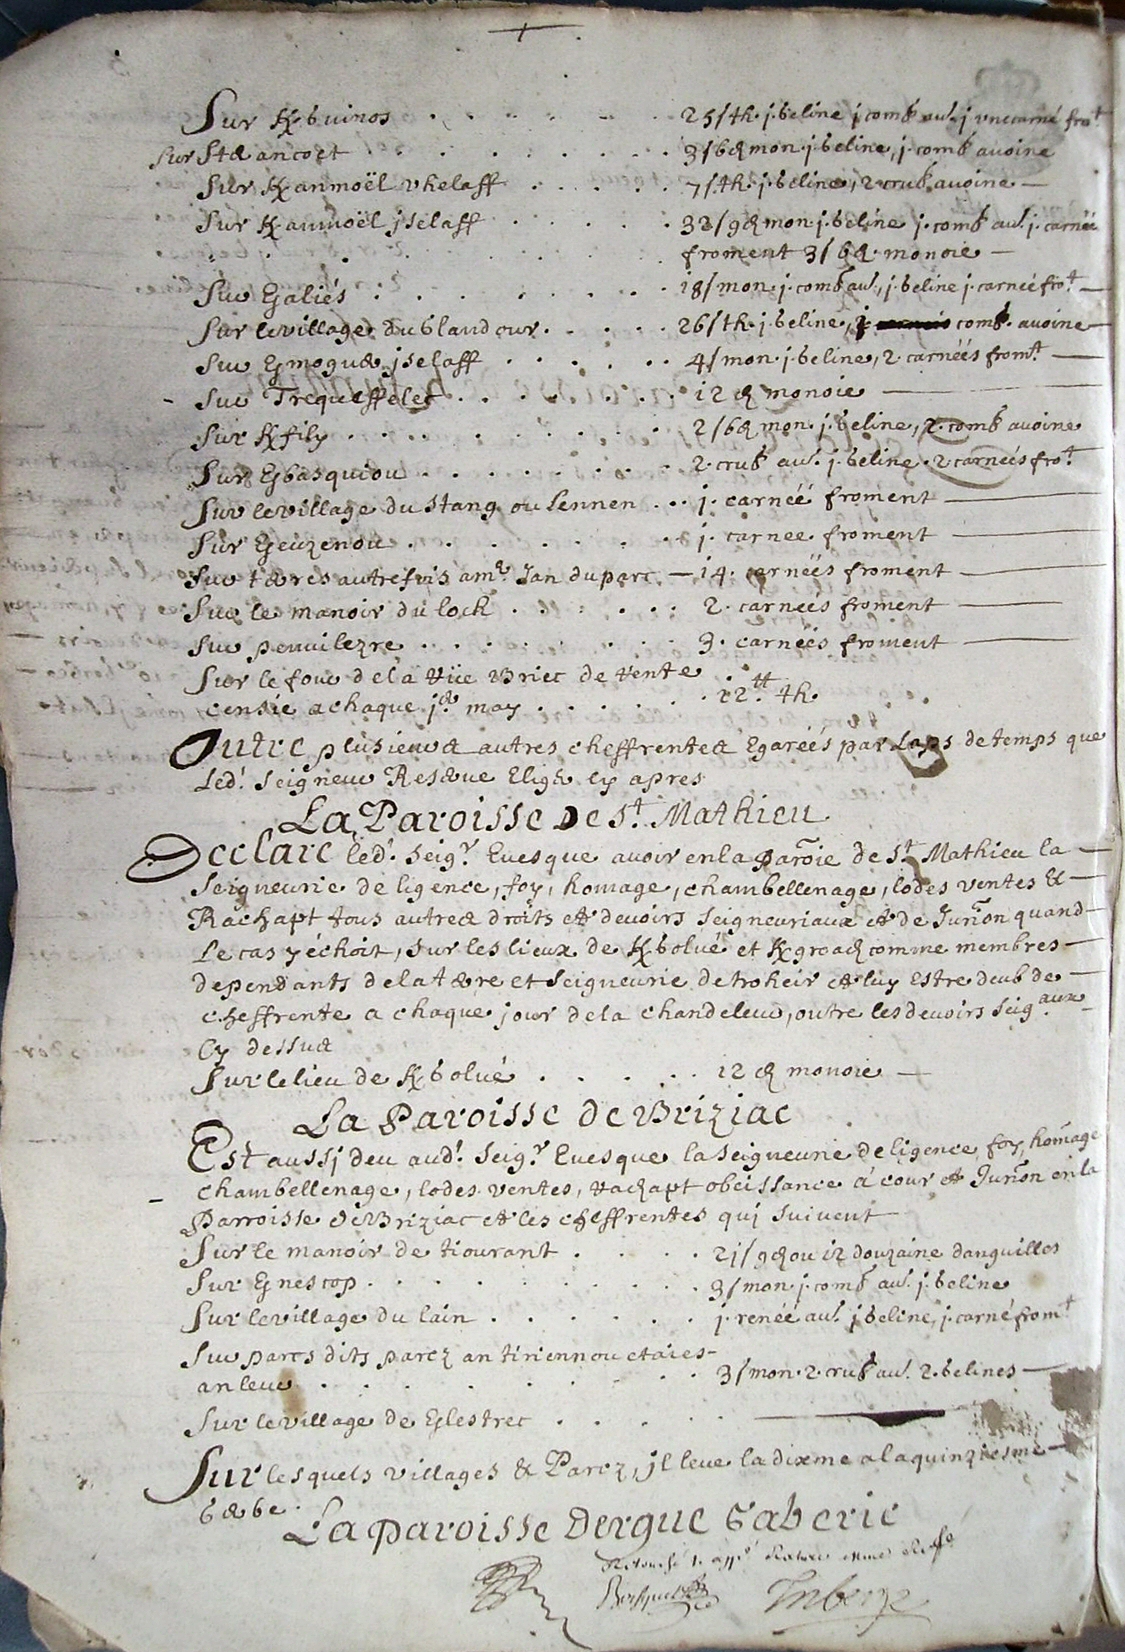 Sur K/buinos . . . . . . 25 s th. j. beline j comb au. j vne carné fro.t
Sur Stæancoet . . . . . . . . 3 s 6 d mon. j. beline, j. comb auoine
Sur K/anmoël vhelaff . . . . . 7 s th. j. beline, 2 crub auoine —
Sur K/anmoël jselaff . . . . . 33 s 9 d mon. j. beline j. comb au. j. carnéé
froment 3 s 6 d. monoie —
Sur K/galiés . . . . . . . . 18 s mon. j. comb au., j. beline j. carnéé fro.t —
Sur le village du blandour . . . . . 26 s th. j. beline, comb. auoine —
Sur K/moguæ jselaff . . . . . . 4 s mon. j. beline, 2. carnéés from.t —
- Sur Trequeffelec . . . . . . . . 12 d monoie —
Sur K/fily . . . . . . . . . 2 s 6 d mon. j. beline, 2. comb auoine
Sur K/basquiou . . . . . . . . 2. crub au. j. beline. 2 carnéés fro.t
Sur le village du stang ou lennen . . . j. carnéé froment —
Sur K/euzenou . . . . . . . . . j. carnee froment —
Sur tæres autrefois a m.r Jan du parc — 14. carnéés froment —
Sur le manoir du lock . . . . . . 2. carnéés froment —
Sur penuilezre . . . . . . . . 3. carnéés froment —
Sur le four de la ville Briec de rente
censie a chaque j.er may . . . . . . 12.tt th.
Outre plusieurs autres cheffrentes Egaréés par laps de temps que
Led.t Seigneur Resærue cy apres
La Paroisse De S.t Mathieu
Declare led.t Seig.r Euesque auoir en la paroie de S.t Mathieu la —
Seigneurie de ligence, foy, homage, chambellenage, lodes ventes &
Rachapt tous autres droits et deuoirs Seigneuriaux et de Jurion quand —
Le cas y échoit, sur les lieux de K/bolué et K/groach comme membres —
dependants de la tære et Seigneurie de troheir et luy Estre deub de —
cheffrente a chaque jour de la chandeleur, outre les deuoirs Seig.aux —
Cy dessus
Sur le lieu de K/bolué . . . . . . 12 d monoie —
La Paroisse de Briziac
Est aussj deu aud.t Seig.r Euesque la Seigneurie de ligence, foy, homage
- chambellenage, lodes ventes, rachapt obeissance à cour et Jurion en la
Parroisse de Briziac et les cheffrentes quj suiuent
Sur le manoir de tiourant . . . . 21 s 9 d ou 12 douzaine danguilles
Sur K/nescop . . . . . . . . . 3 s mon. j. comb au. j. beline
Sur le village du lain . . . . . . . j. renéé au. j beline, j. carné from.t
Sur parcs dits parcz an tiriennou etaies-
an leur . . . . . . . . . 3 s mon. 2. crub au. 2. belines —
Sur le village de K/lestrec . . . . . —
Sur lesquels villages & Parcz, jl leue la dixme a la quinziesme —
gærbe.
La Paroisse Dergue Gaberic